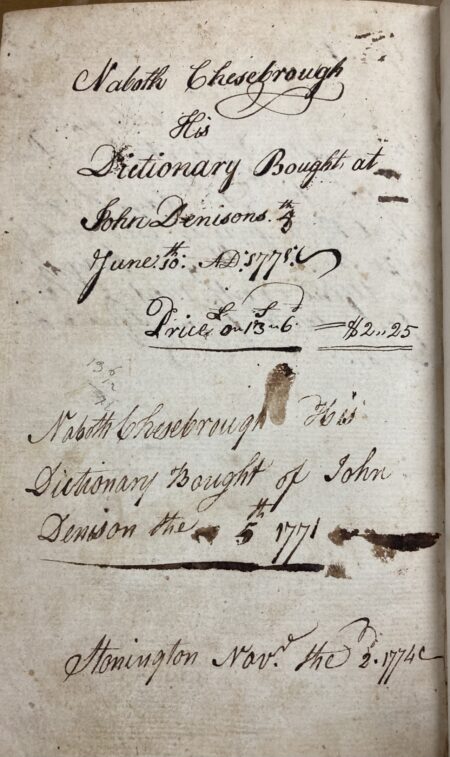 Naboth Chesebrough
His
Dictionary Bought at
John Denisons. 
June. 10th. AD: 1771:
£ S d
Price 0 „ 13 „ 6. = $2 „ 25
136
Naboth Chesebrough His
Dictionary Bought of John
Denison the 5th 1771
Stonington Novr. the 2d. 1774